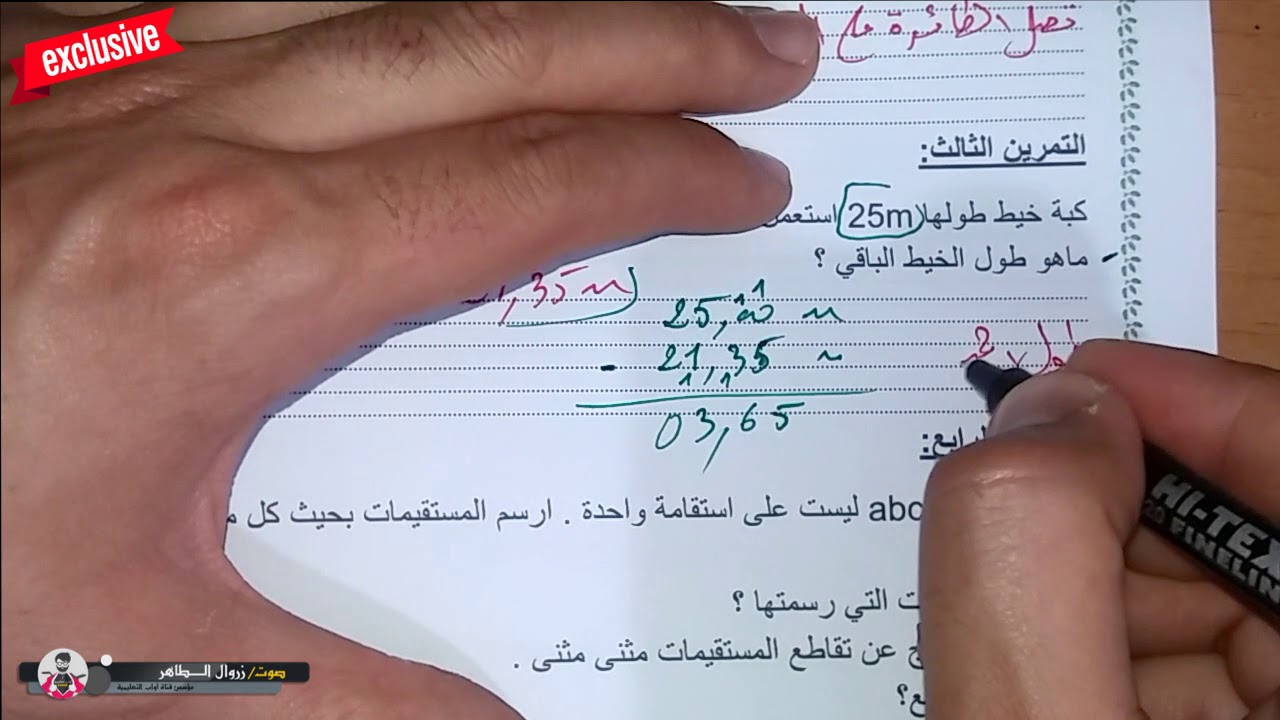 exclusive
تصل الطائرة على
التمرين الثالث:
كبة خيط طولها 25m استعمل
- ماهو طول الخيط الباقي ؟
,35 m
25,00 m
- 21,35 m
03,65
abc ليست على استقامة واحدة . ارسم المستقيمات بحيث كل
التي رسمتها ؟
عن تقاطع المستقيمات مثنى مثنى .
HI-TEX
FINELIN
صوت/ زروال الطاهر
مؤسس قناة اواب التعليمية